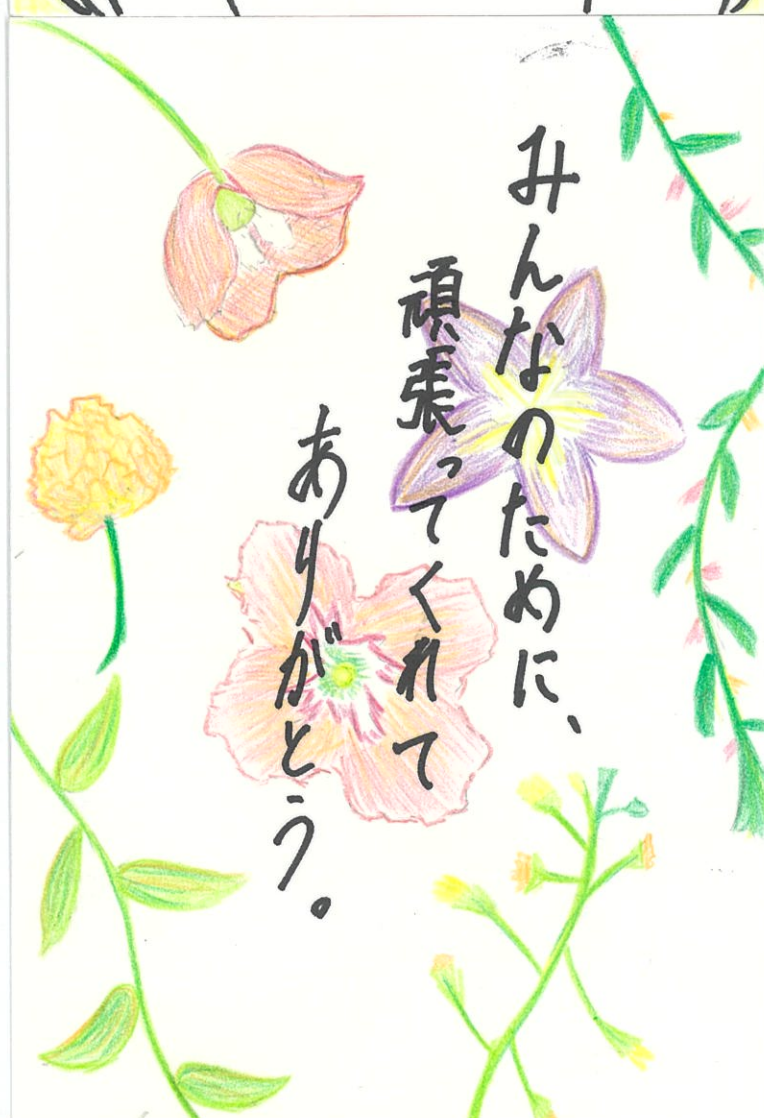 みんなのために、
頑張ってくれて
ありがとう。